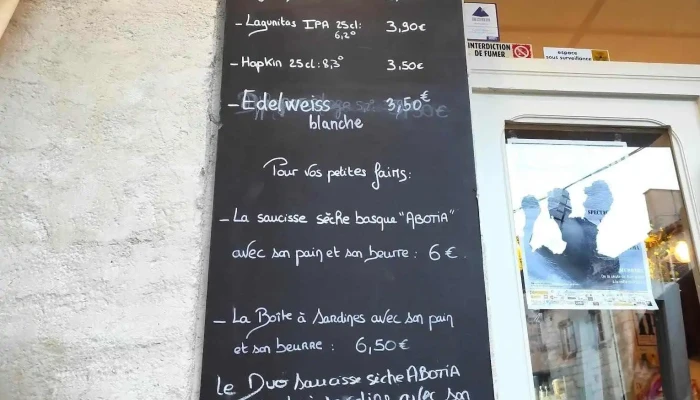 - Lagunitas IPA 25cl: 3,90€
6,2°
- Hopkin 25cl: 8,3° 3,50€
- Edelweiss 3,50€
blanche
Pour vos petites faims:
- La saucisse sèche basque "ABOTIA"
avec son pain et son beurre : 6€.
- La Boîte à Sardines avec son pain
et son beurre : 6,50€
Le Duo saucisse sèche ABOTIA
avec son
INTERDICTION
DE FUMER
espace
sous surveillance